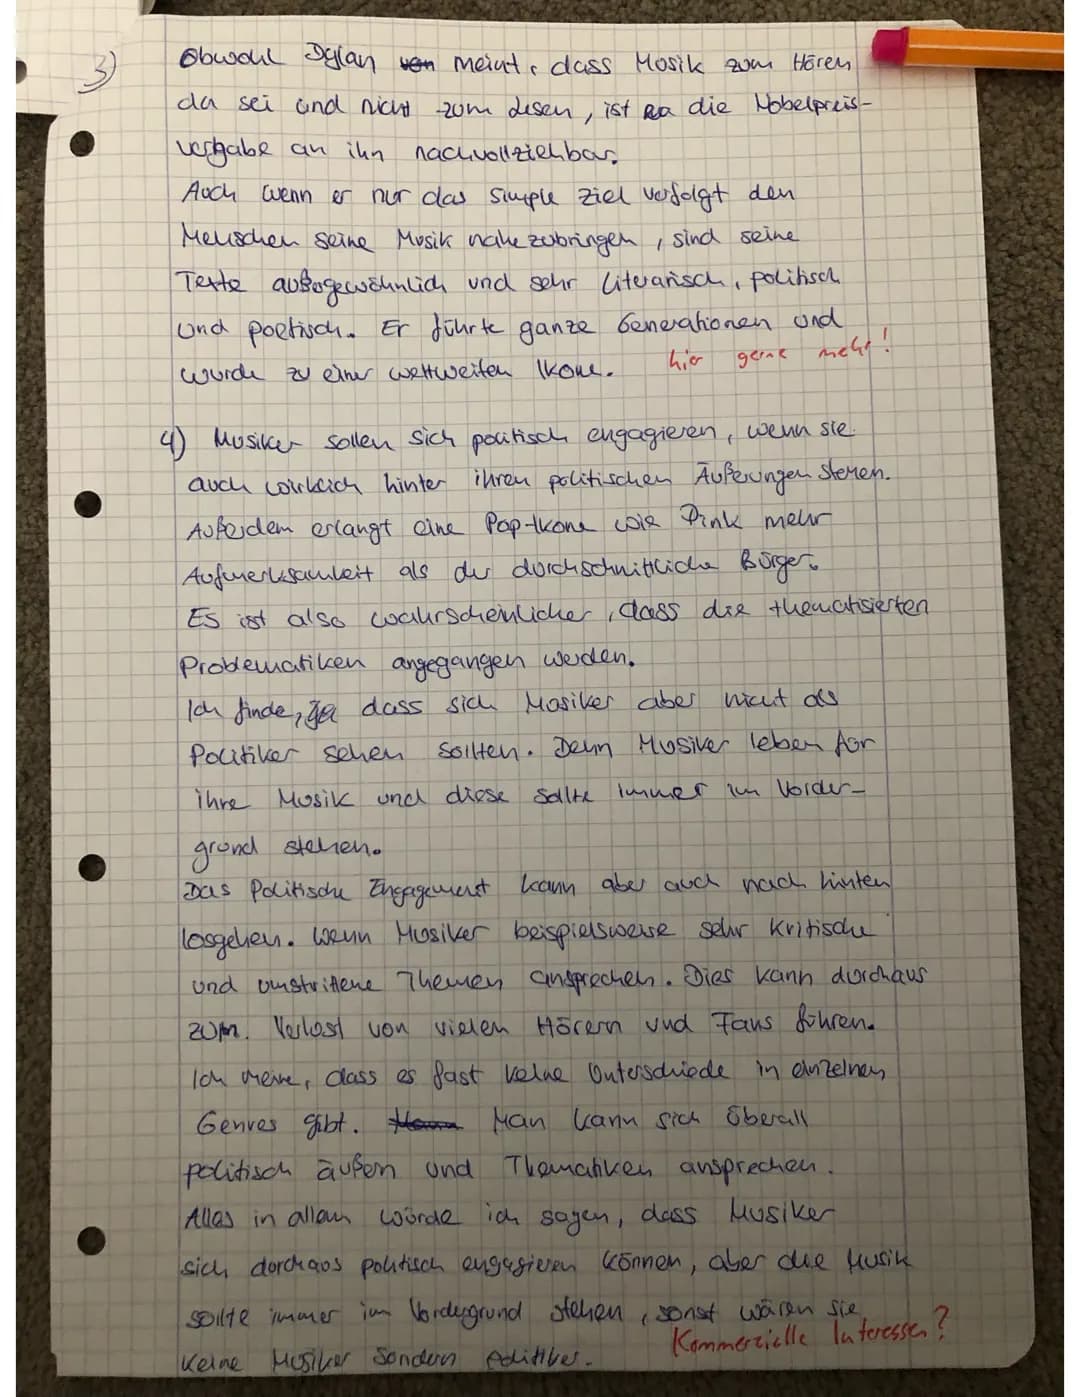 3) Obwohl Dylan von meint, dass Musik zum Hören
da sei und nicht zum Lesen, ist die Nobelpreis-
vergabe an ihn nachvollziehbar.
Auch wenn er nur das simple Ziel verfolgt den
Menschen seine Musik nahezubringen, sind seine
Texte außegewöhnlich und sehr literarisch, politisch
und poetisch. Er führte ganze Generationen und
wurde zu einer weltweiten Ikone. hier gerne mehr!
4) Musiker sollen sich politisch engagieren, wenn sie
auch wirklich hinter ihren politischen Äußerungen stehen.
Außerdem erlangt eine Pop-Ikone wie Pink mehr
Aufmerksamkeit als der durchschnittliche Bürger.
Es ist also wahrscheinlicher, dass die thematisierten
Problematiken angegangen werden.
Ich finde, dass sich Musiker aber nicht als
Politiker sehen sollten. Denn Musiker leben für
ihre Musik und diese sollte immer im Vorder-
grund stehen.
Das Politische Engagement kann aber auch nach hinten
losgehen. Wenn Musiker beispielsweise sehr kritische
und umstrittene Themen ansprechen. Dies kann durchaus
zum Verlust von vielen Hörern und Fans führen.
Ich meine, dass es fast keine Unterschiede in einzelnen
Genres gibt. Man kann sich überall
politisch äußern und Thematiken ansprechen.
Alles in allem würde ich sagen, dass Musiker
sich durchaus politisch engagieren können, aber die Musik
sollte immer im Vordergrund stehen, sonst wären sie
keine Musiker sondern Politiker. Kommerzielle Interessen?